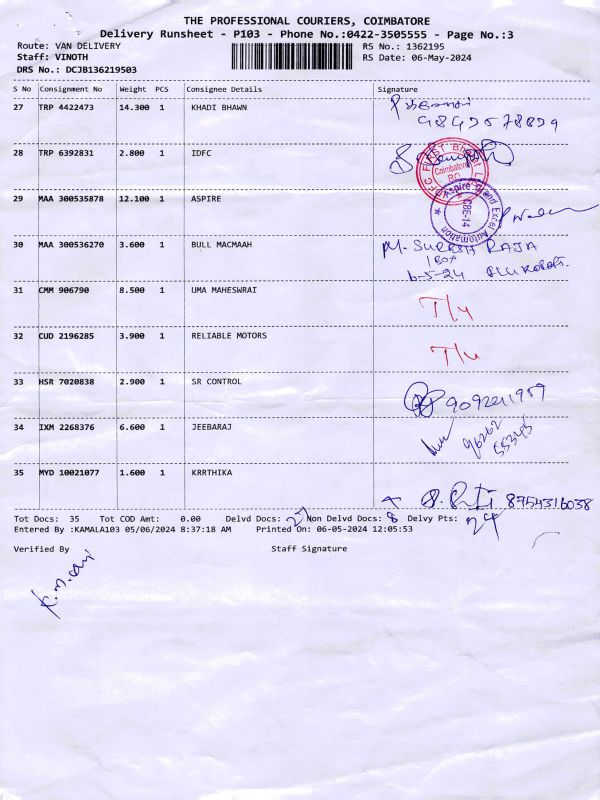 THE PROFESSIONAL COURIERS, COIMBATORE
Delivery Runsheet - P103 - Phone No.:0422-3505555 - Page No.:3
Route: VAN DELIVERY RS No.: 1362195
Staff: VINOTH RS Date: 06-May-2024
DRS No.: DCJB136219503
S No Consignment No Weight PCS Consignee Details Signature
27 TRP 4422473 14.300 1 KHADI BHAWN
28 TRP 6392831 2.800 1 IDFC
IDFC FIRST Coimbatore
29 MAA 300535878 12.100 1 ASPIRE
Aspire Excel Automation CBE-14
30 MAA 300536270 3.600 1 BULL MACMAAH M. SURESH RAJA
1 BOX
6-5-24
31 CMM 906790 8.500 1 UMA MAHESWRAI T/u
32 CUD 2196285 3.900 1 RELIABLE MOTORS T/u
33 HSR 7020838 2.900 1 SR CONTROL
34 IXM 2268376 6.600 1 JEEBARAJ 96262
55345
35 MYD 10021077 1.600 1 KRRTHIKA 8754316038
Tot Docs: 35 Tot COD Amt: 0.00 Delvd Docs: 27 Non Delvd Docs: 8 Delvy Pts: 24
Entered By :KAMALA103 05/06/2024 8:37:18 AM Printed On: 06-05-2024 12:05:53
Verified By Staff Signature